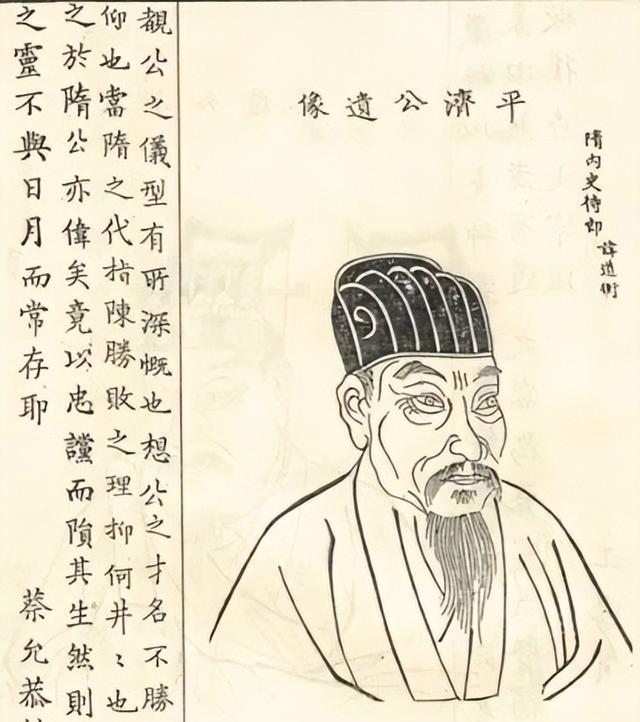 平濟公遺像
隋內史侍郎 諱道衡
覩公之儀型有所深慨也想公之才名不勝
仰也當隋之代指陳勝敗之理抑何井〻也
之於隋公亦偉矣竟以忠讜而隕其生然則
之靈不與日月而常存耶 蔡允恭